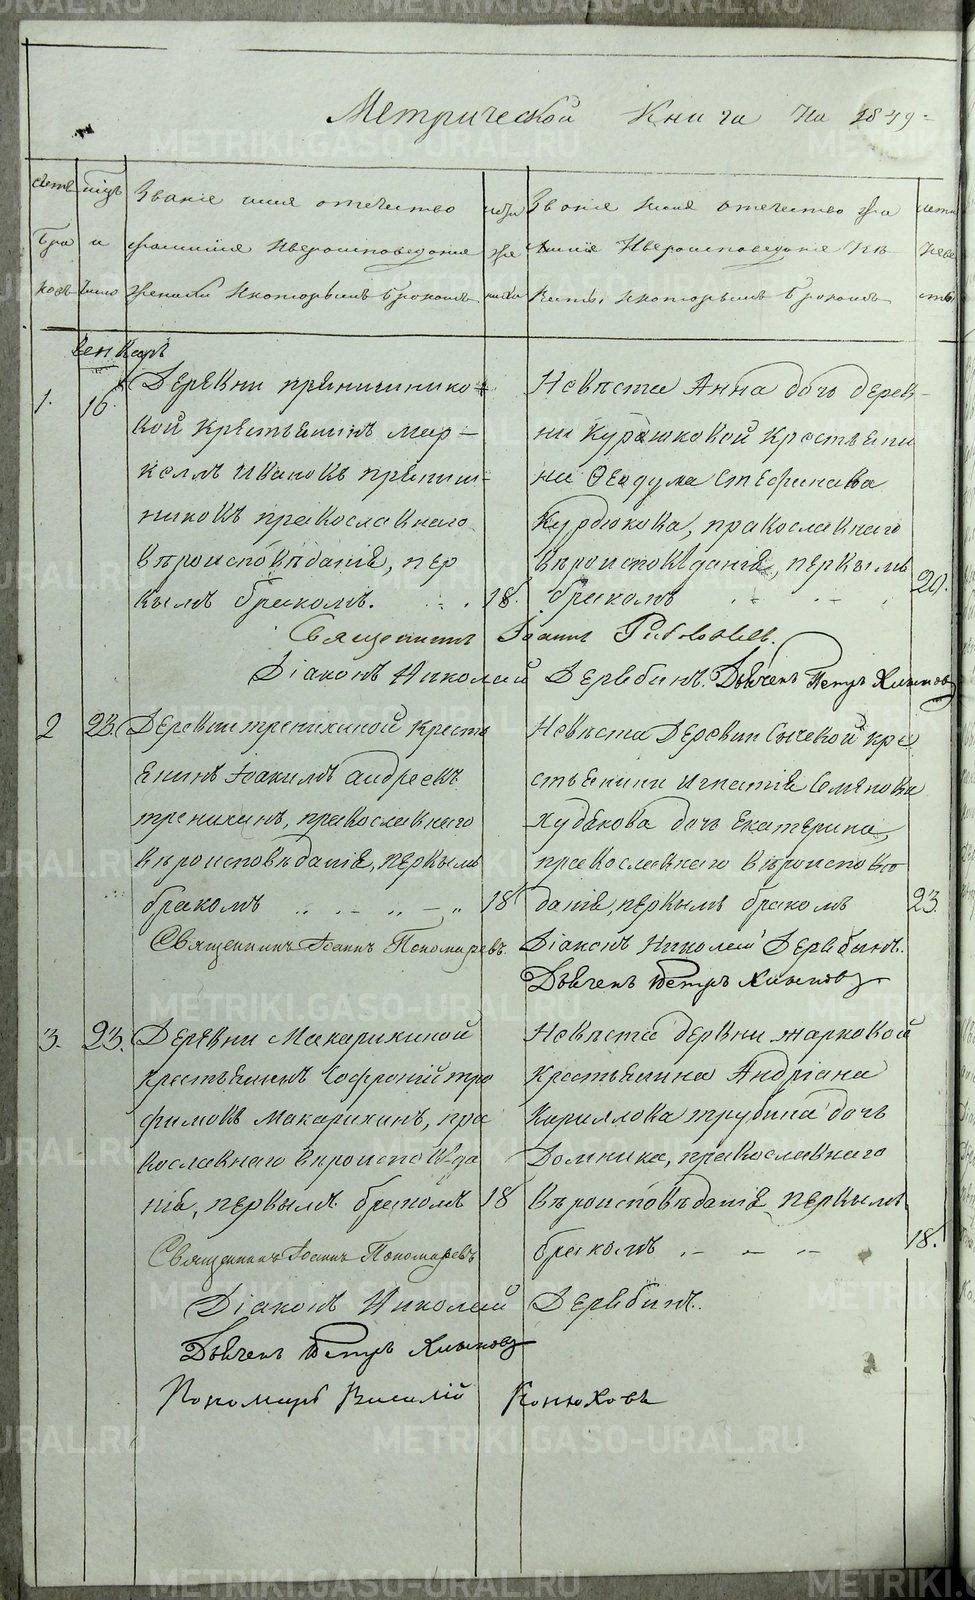 Метрической Книги на 1849
счетъ
бра
ковъ
мѣсяцъ
и
число
Званіе имя отечество
фамилія и вероисповеданіе
женихи и которымъ бракомъ
лета
же
ниха
Званіе имя отечество фа
милія и вероисповеданіе не
весты, и которымъ бракомъ
лета
неве
сты
Генварь
1. 16.
Деревни пряничнико-
вой крестьянинъ Мар-
келлъ Ивановъ прянич-
никовъ православнаго
вѣроисповѣданія, пер
вымъ бракомъ. 18.
Невѣста Анна дочь дерев-
ни Курдюковой крестьяни
на Ѳеодула Стефанова
Курдюкова, православнаго
вѣроисповѣданія, первымъ
бракомъ 20.
Священникъ Іоаннъ
Діаконъ Николай Дерябинъ. Дьячекъ Петръ Хлыновъ
2 23.
Деревни тренихиной кресть
янинъ Іоакимъ андреевъ
тренихинъ, православнаго
вѣроисповѣданія, первымъ
бракомъ 18
Невѣста Деревни Сычевой кре
стьянина Игнатія Семенова
Худякова дочь Екатерина,
православнаго вѣроисповѣ
данія, первымъ бракомъ 23.
Священникъ Іоаннъ Пономаревъ. Діаконъ Николай Дерябинъ.
Дьячекъ Петръ Хлыновъ
3. 23.
Деревни Макарихиной
крестьянинъ Софроній тро
фимовъ Макарихинъ, пра
вославнаго вѣроисповѣда
нія, первымъ бракомъ 18
Невѣста дервни жарковой
крестьянина Андріана
Кариллова трубина дочь
Домника, православнаго
вѣроисповѣданія первымъ
бракомъ 18.
Священникъ Іоаннъ Пономаревъ
Діаконъ Николай Дерябинъ.
Дьячекъ Петръ Хлыновъ
Пономарь Василій Конюховъ
METRIKI.GASO-URAL.RU